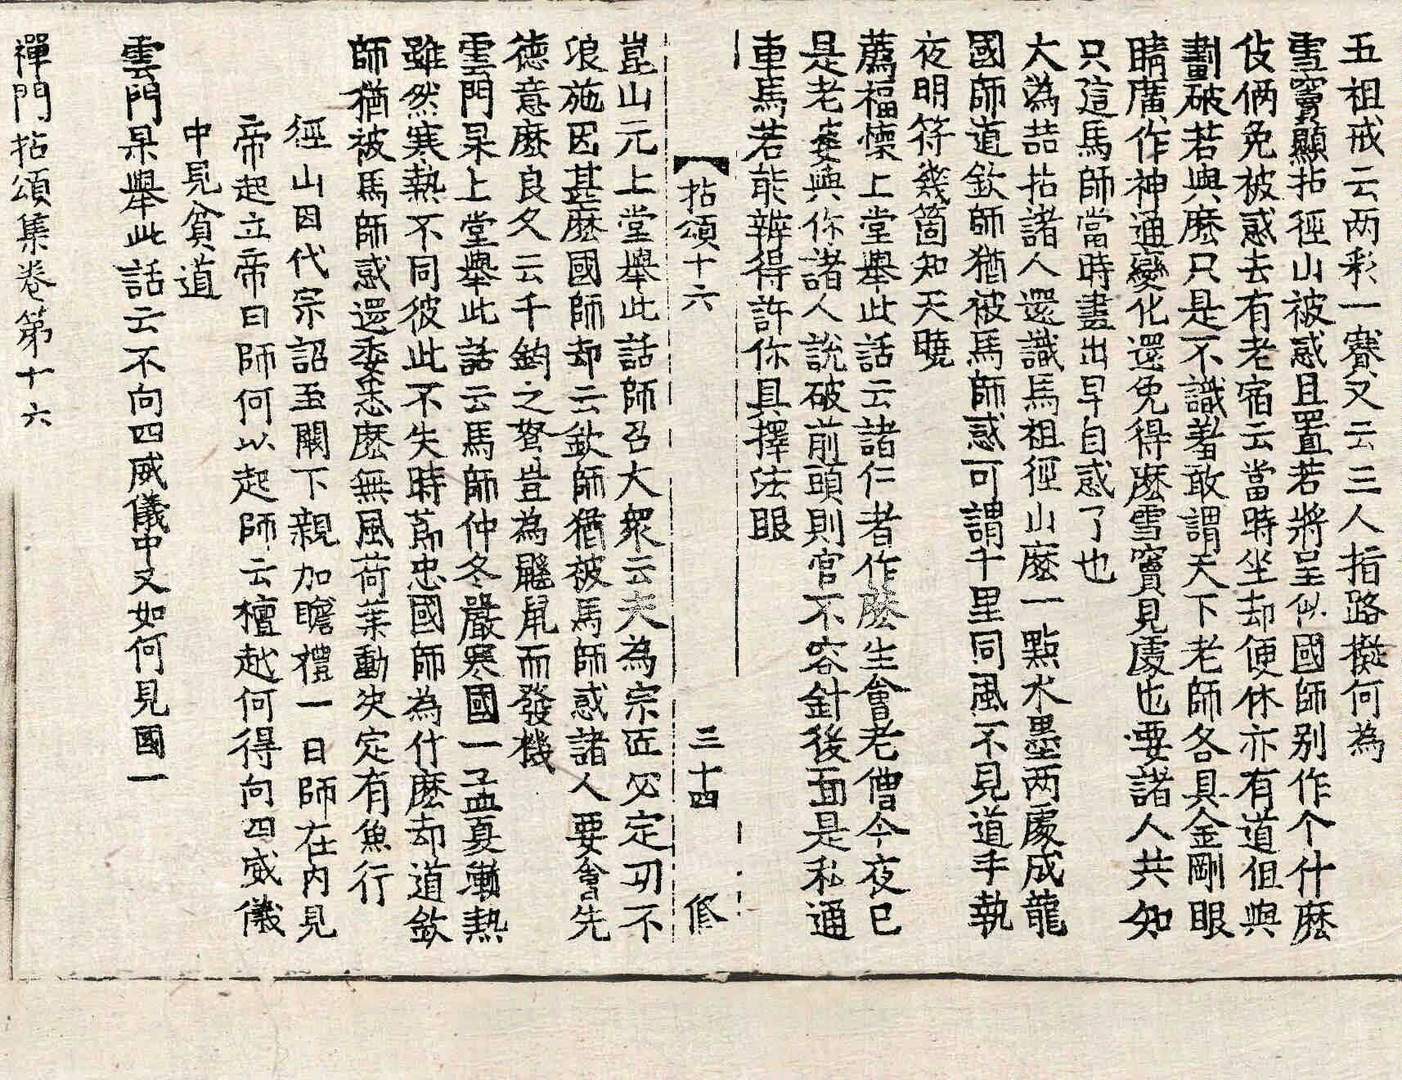 五祖戒云两彩一賽又云三人指路擬何為
雪竇顯拈徑山被惑且置若將呈似國師别作个什麽
伎倆免被惑去有老宿云當時坐却便休亦有道但與
劃破若與麽只是不識羞敢謂天下老師各具金剛眼
睛廣作神通變化還免得麽雪竇見處也要諸人共知
只這馬師當時畫出早自惑了也
大溈喆拈諸人還識馬祖徑山麽一點水墨两處成龍
國師道欽師猶被馬師惑可謂千里同風不見道手執
夜明符幾箇知天曉
薦福懷上堂舉此話云諸仁者作麽生會老僧今夜已
是老婆與你諸人說破前頭則官不容針後面是私通
車馬若能辨得許你具擇法眼
拈頌十六 三十四 修
崑山元上堂舉此話師召大衆云夫為宗匠必定刃不
浪施因甚麽國師却云欽師猶被馬師惑諸人要會先
德意麽良久云千鈞之弩豈為鼷鼠而發機
雲門杲上堂舉此話云馬師仲冬嚴寒國一孟夏漸熱
雖然寒熱不同彼此不失時莭忠國師為什麽却道欽
師猶被馬師惑還委悉麽無風荷葉動决定有魚行
徑山因代宗詔至闕下親加瞻禮一日師在内見
帝起立帝曰師何以起師云檀越何得向四威儀
中見貧道
雲門杲舉此話云不向四威儀中又如何見國一
禪門拈頌集卷第十六